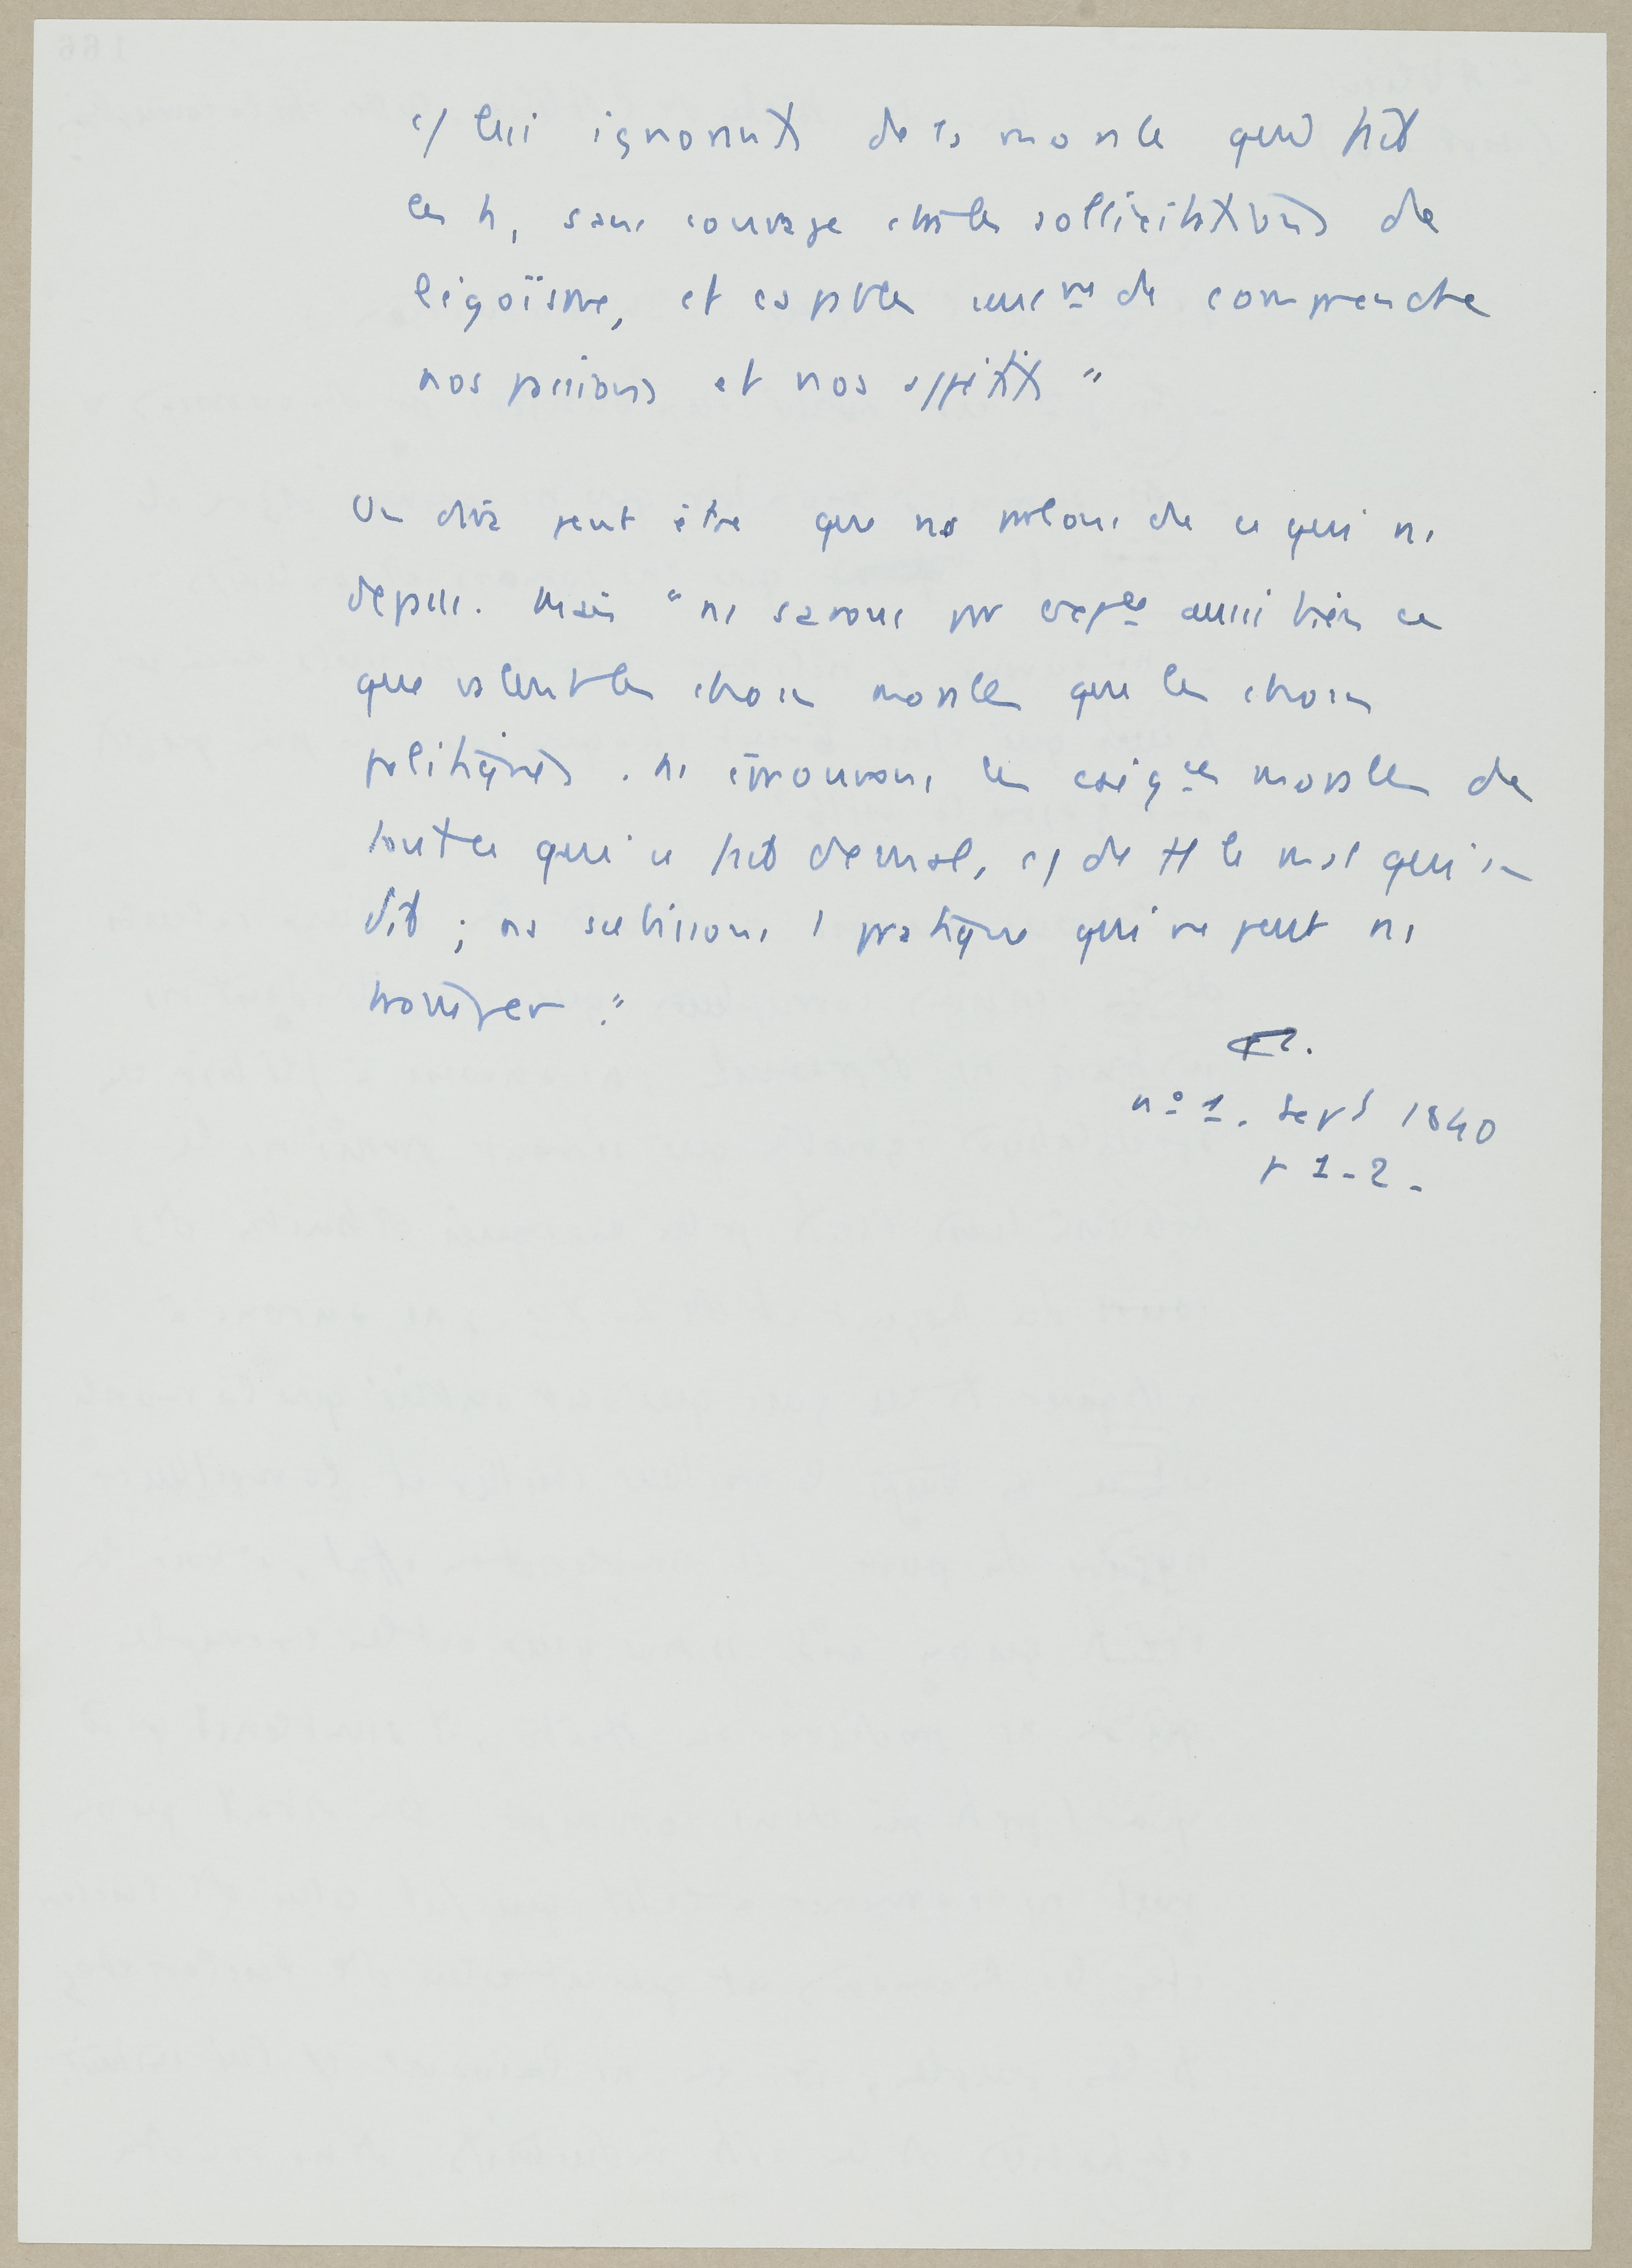 c/ lui ignorant de la morale qui fait
les h, sans courage ctre les sollicitations de
l'égoïsme, et capable seule^mt de comprendre
nos passions et nos appétits "
On dira peut être que ns parlons de ce qui ns
dépasse. Mais " ns savons par exp^ce aussi bien ce
que valent les choses morales que les choses
politiques. ns éprouvons les exig^ces morales de
tout ce qui se fait de mal, c/ de tt le mal qui se
dit ; ns subissons 1 pratique qui ne peut ns
tromper."
n° 1. Sept 1840
p 1-2.